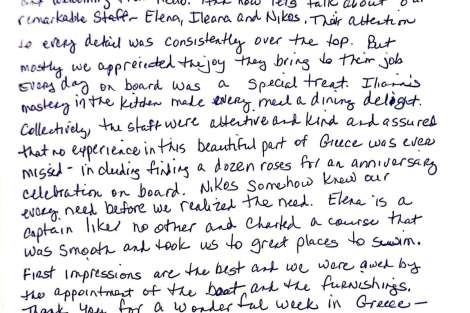 And now lets talk about our
remarkable Staff - Elena, Ileana and Nikos. Their attention
to every detail was consistently over the top. But
mostly we appreicted the joy they bring to their job
Every day on board was a special treat. Iliana's
mastery in the kitchen made every meal a dining delight.
Collectively, the staff were attentive and kind and assured
that no experience in this beautiful part of Greece was ever
missed - including finding a dozen roses for an anniversary
celebration on board. Nikos somehow knew our
every need before we realized the need. Elena is a
captain like no other and charted a course that
was smooth and took us to great places to swim.
First impressions are the best and we were awed by
the appointment of the boat and the furnishings.
Thank you for a wonderful week in Greece -